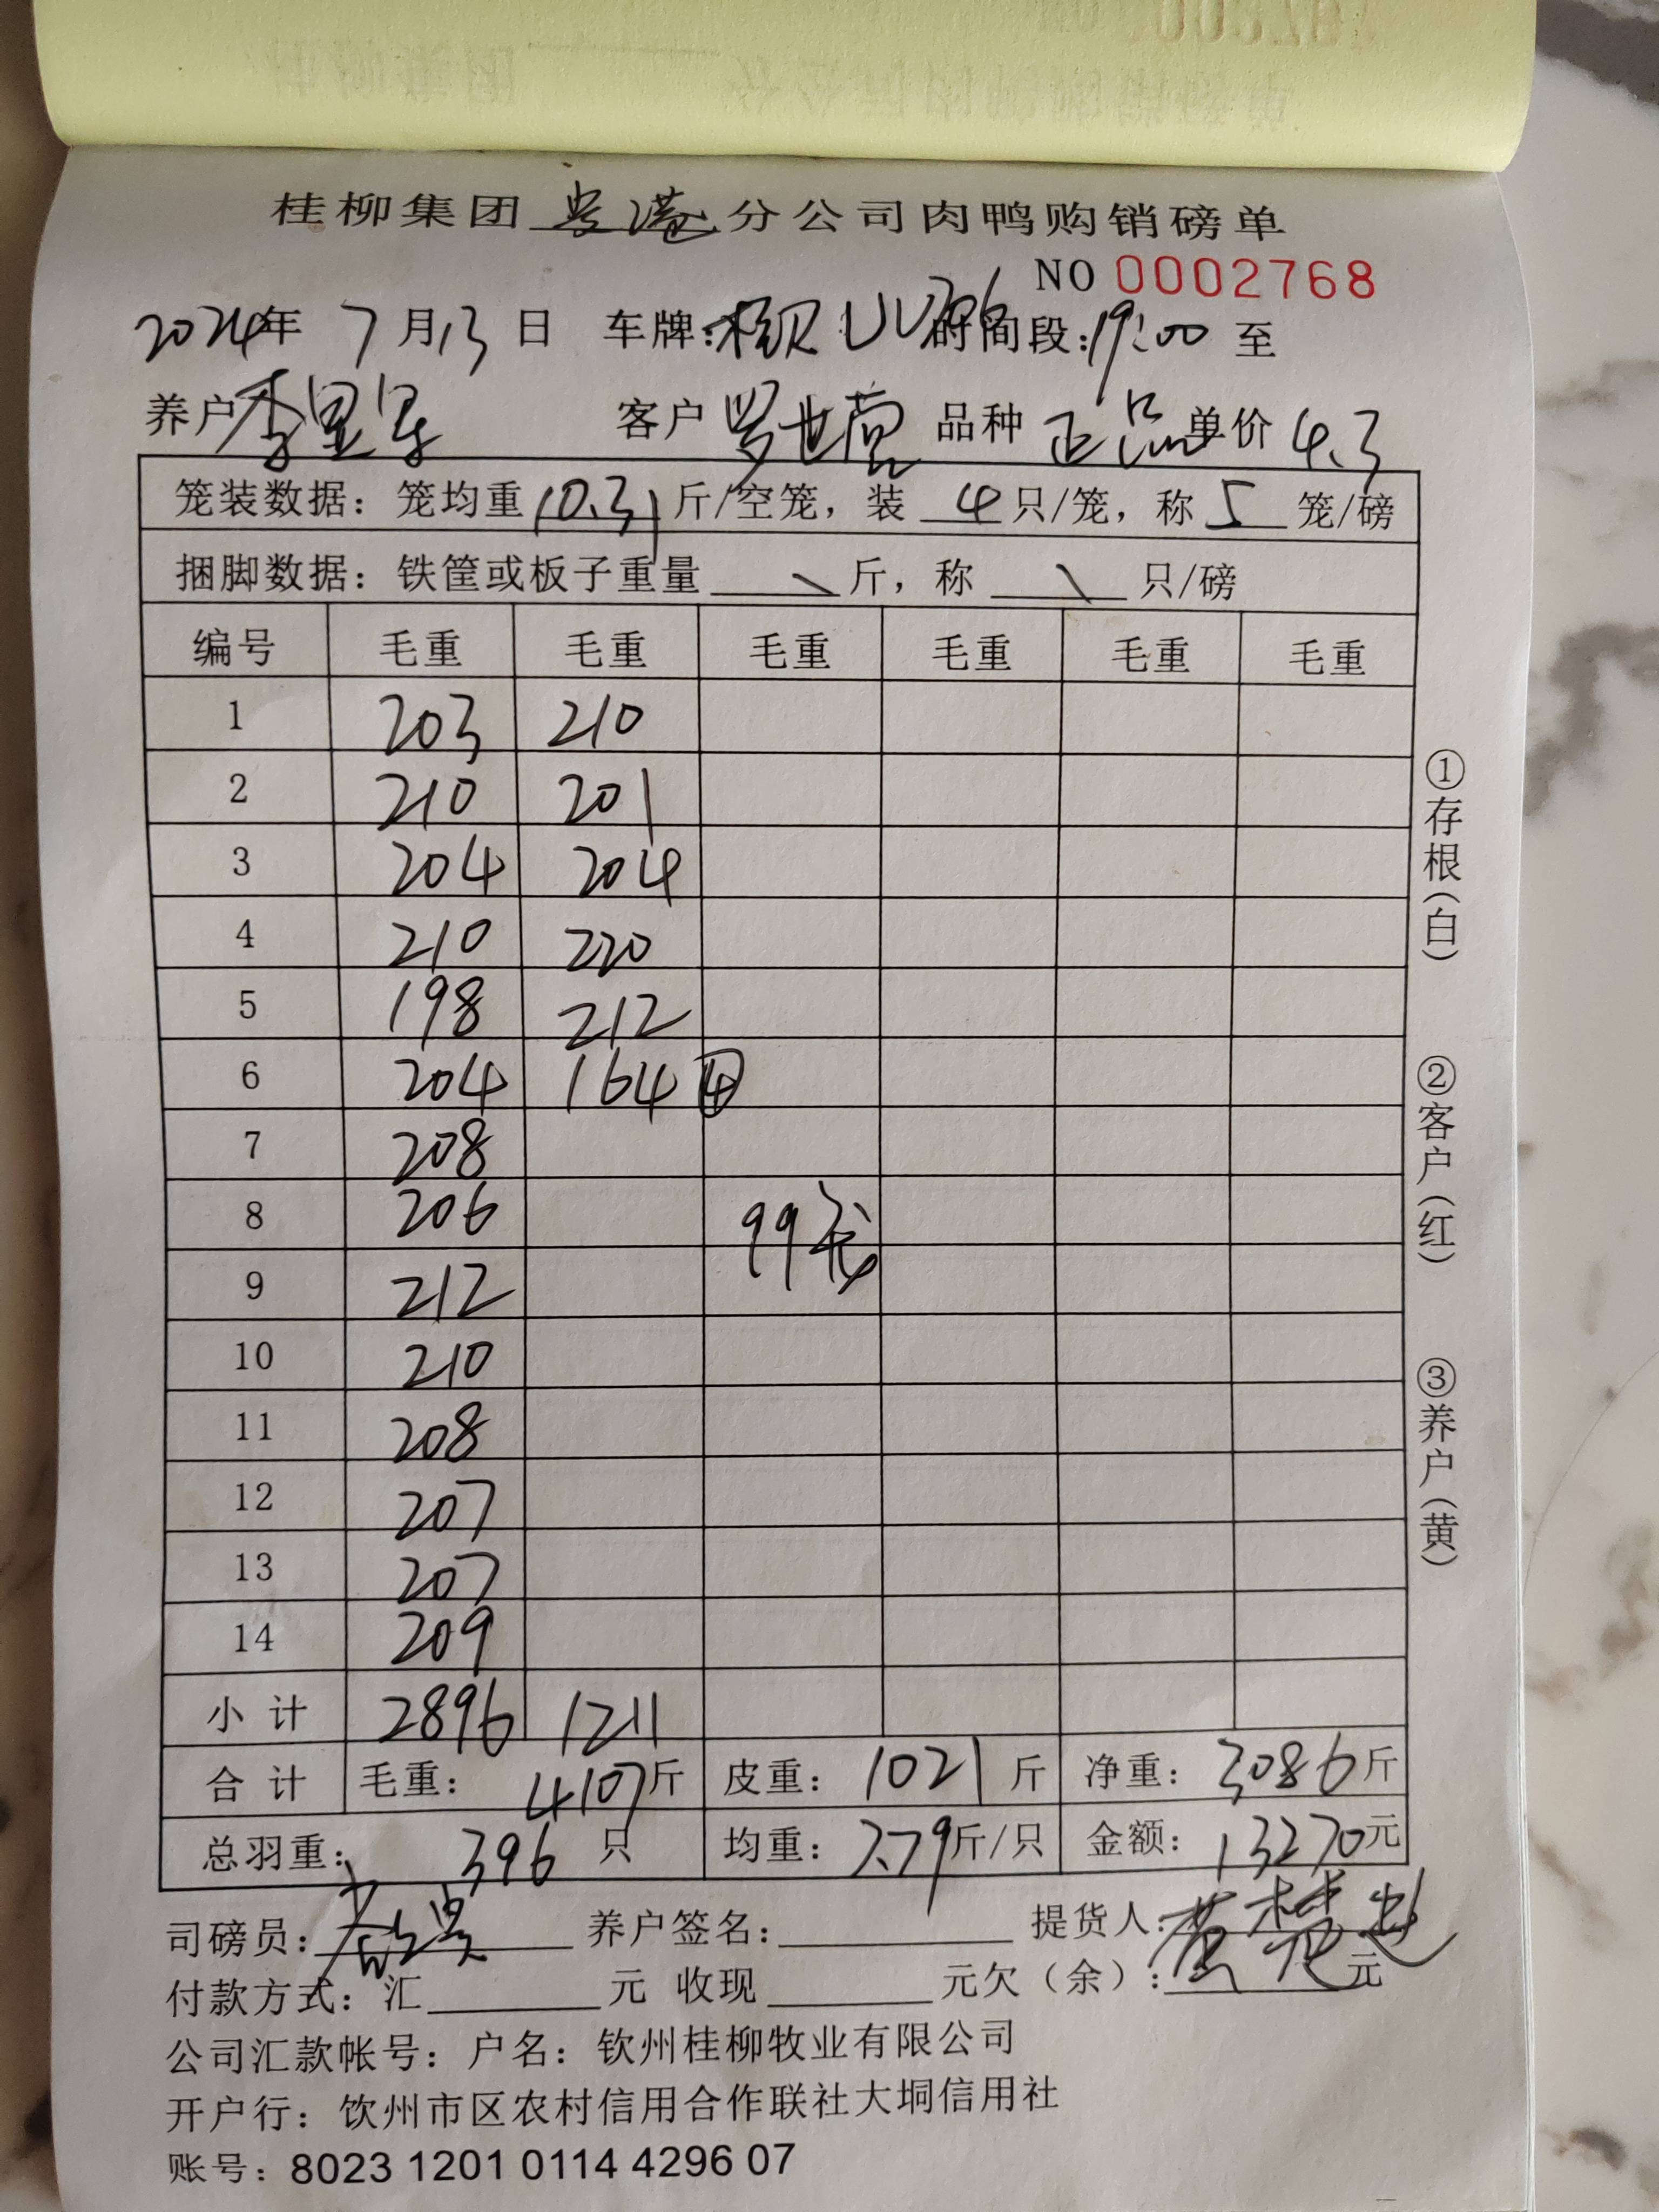 桂柳集团贵港分公司肉鸭购销磅单
NO 0002768
2024年 7月13日 车牌: 时间段:19:00 至
养户 李 客户 罗世 品种 正品 单价 4.3
笼装数据：笼均重10.31斤/空笼，装 4只/笼，称5笼/磅
捆脚数据：铁筐或板子重量 \ 斤，称 \ 只/磅
编号 毛重 毛重 毛重 毛重 毛重 毛重
1 203 210
2 210 201
3 204 204
4 210 220
5 198 212
6 204 164 ④
7 208
8 206 99
9 212
10 210
11 208
12 207
13 207
14 209
小 计 2896 1211
合 计 毛重： 4107斤 皮重： 1021 斤 净重： 3086斤
总羽重： 396 只 均重： 7.79斤/只 金额： 13270元
司磅员： 养户签名： 提货人：黄楚
付款方式：汇 元 收现 元欠（余）： 元
公司汇款帐号：户名：钦州桂柳牧业有限公司
开户行：饮州市区农村信用合作联社大垌信用社
账号：8023 1201 0114 4296 07
①存根（白）
②客户（红）
③养户（黄）